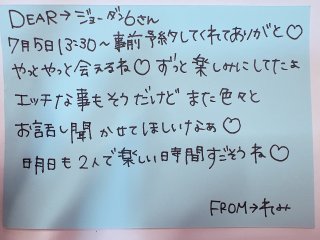 DEAR→ジョーダン6さん
7月5日13:30～事前予約してくれてありがと♡
やっとやっと会えるね♡ずっと楽しみにしてたよ
エッチな事もそうだけど また色々と
お話し聞かせてほしいなぁ♡
明日も2人で楽しい時間すごそうね♡
FROM→れみ